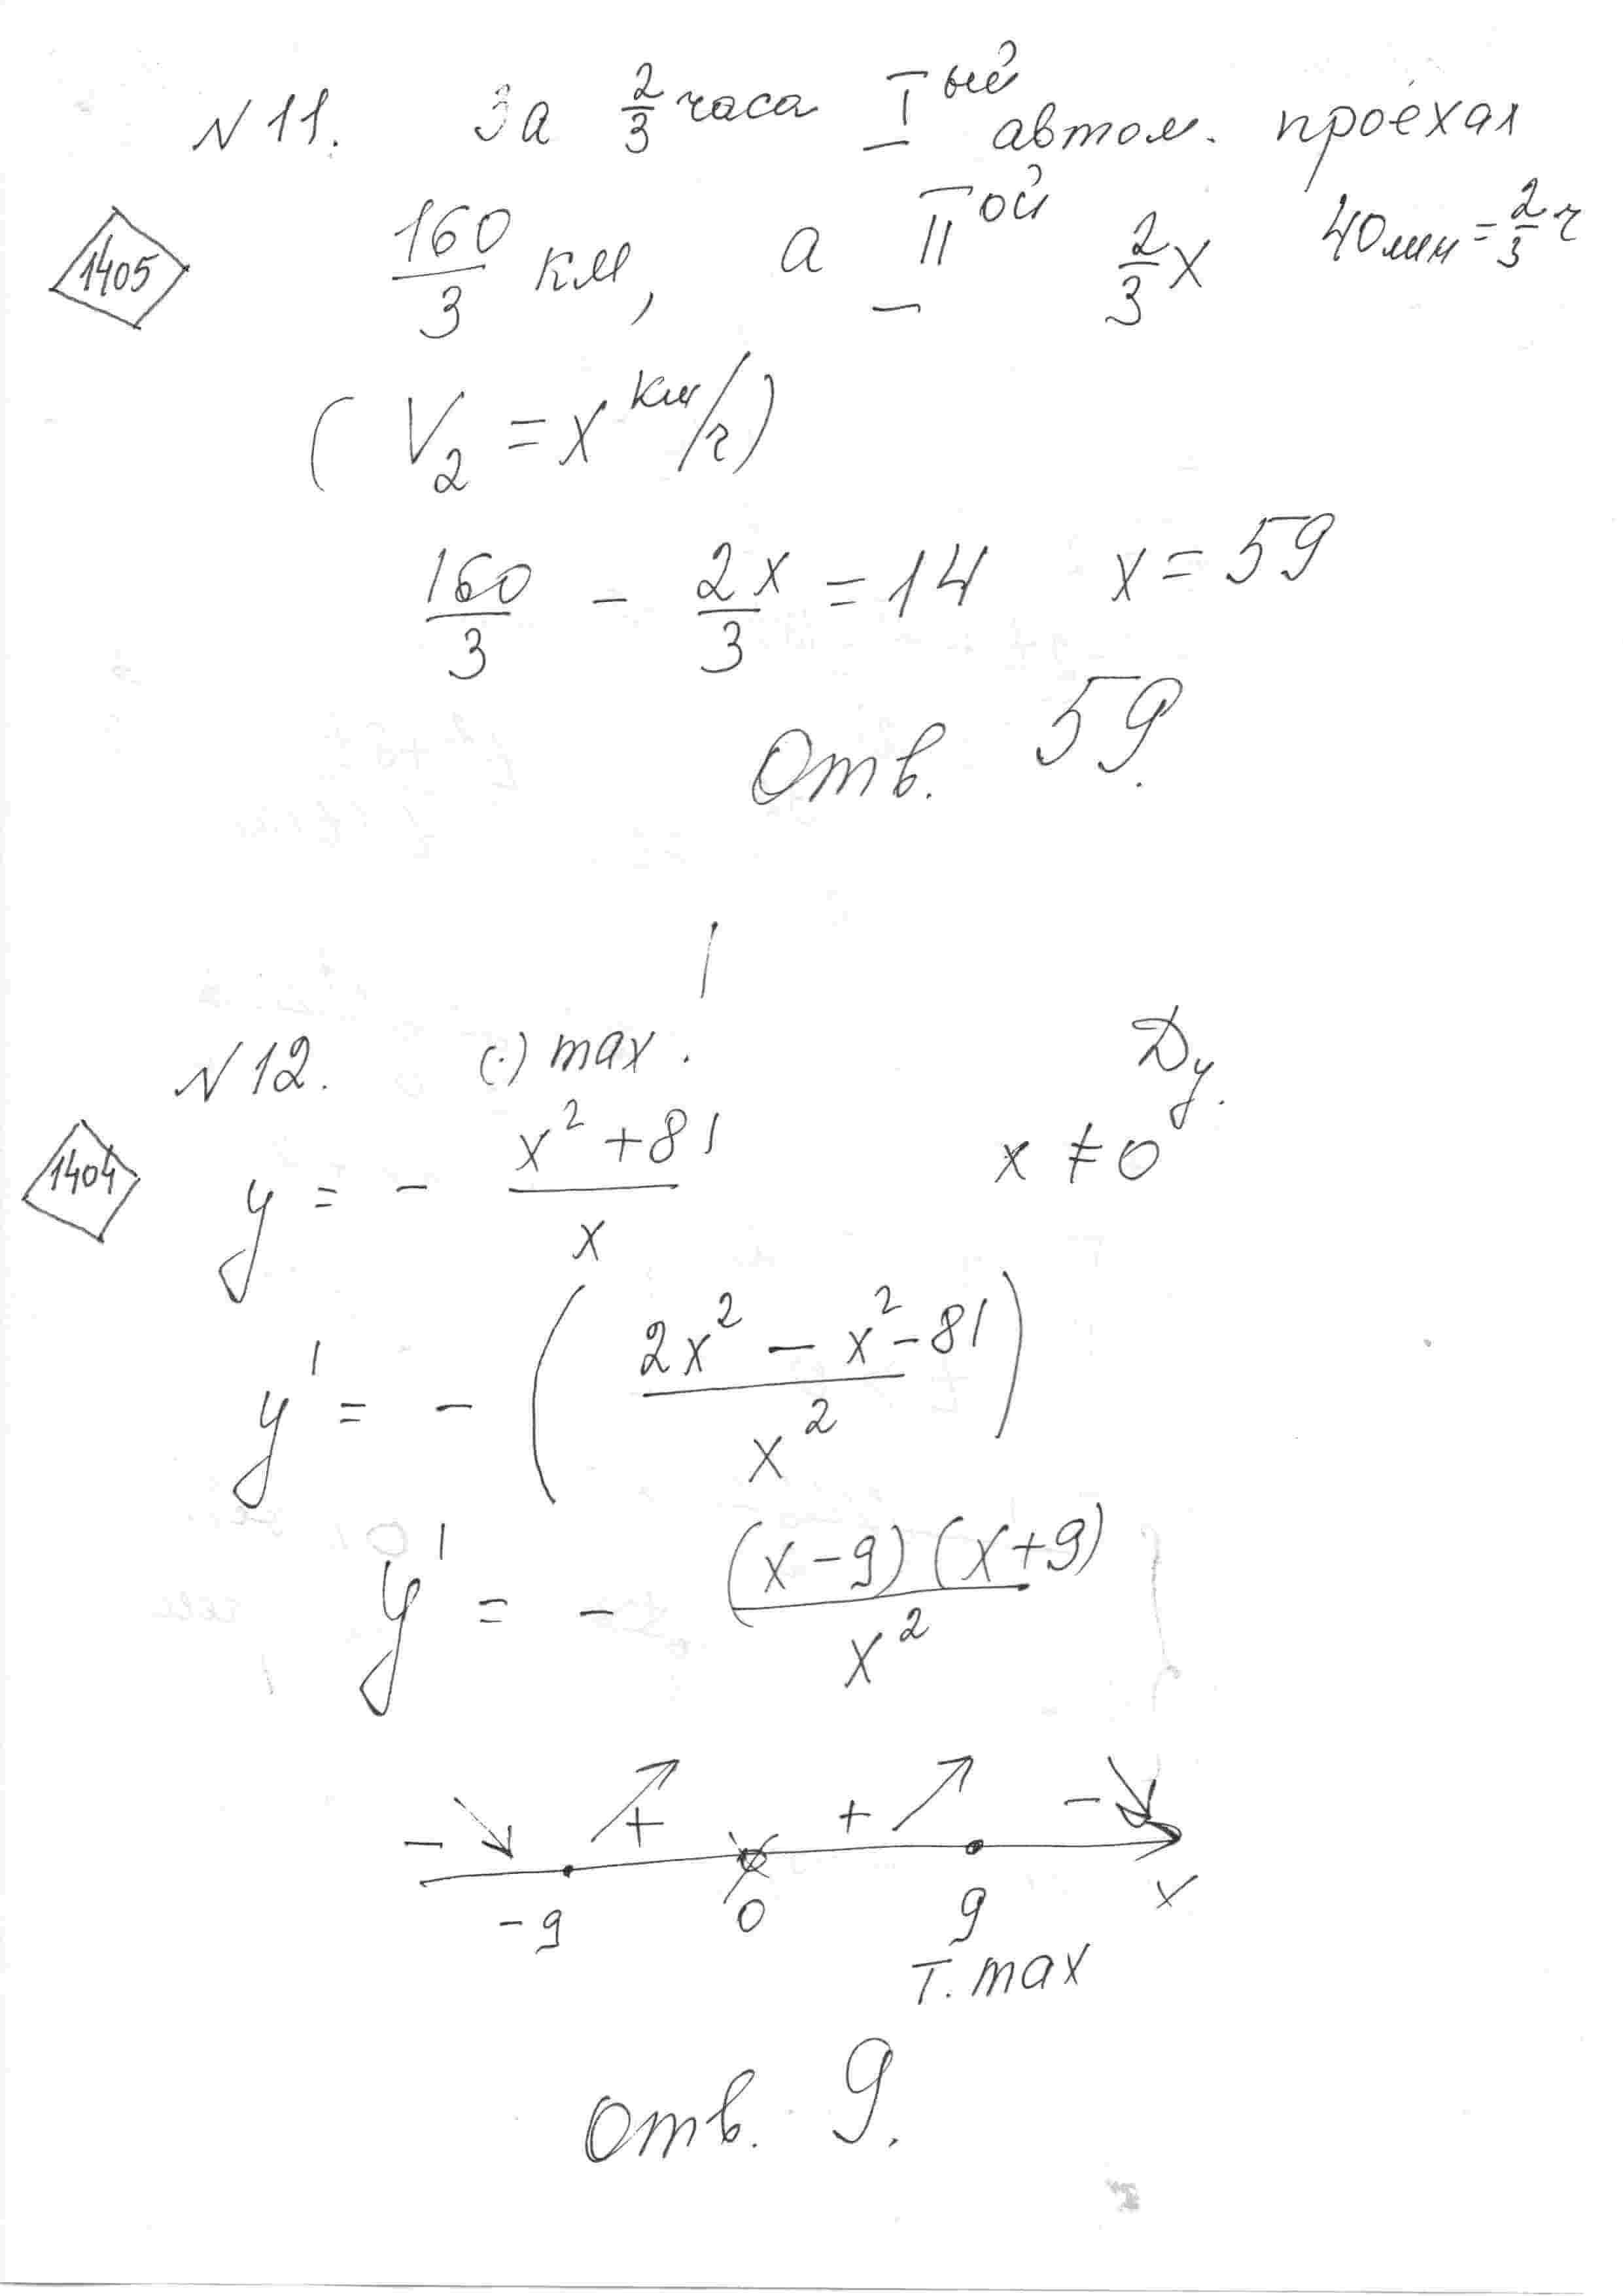 N 11. За 2/3 часа I ый автом. проехал
1405
160/3 км, а II ой 2/3 x 40мин = 2/3 ч
( V₂ = x км/ч )
160/3 - 2x/3 = 14 x = 59
Отв. 59.
N 12. (·) max. Dy.
1404
y = - x² + 81 / x x ≠ 0
y' = - ( 2x² - x² - 81 / x² )
y' = - (x - 9) (x + 9) / x²
- + + -
-9 0 9 x
т. max
Отв. 9.